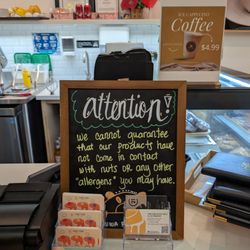 Coffee
$4.99
attention!
We cannot guarantee
that our products have
not come in contact
with nuts or any other
"allergens" you may have.